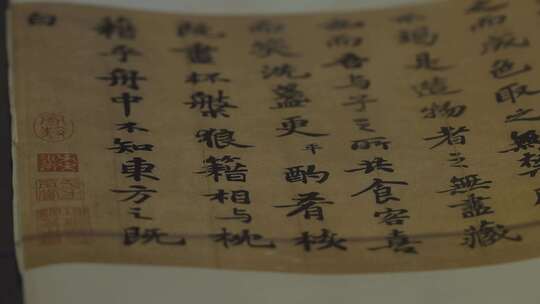 之而成色取之無禁
不竭是造物者之無盡藏
也而吾与子之所共食客喜
而笑洗盞更平酌肴核
既盡杯盤狼籍相与枕
藉乎舟中不知東方之既
白